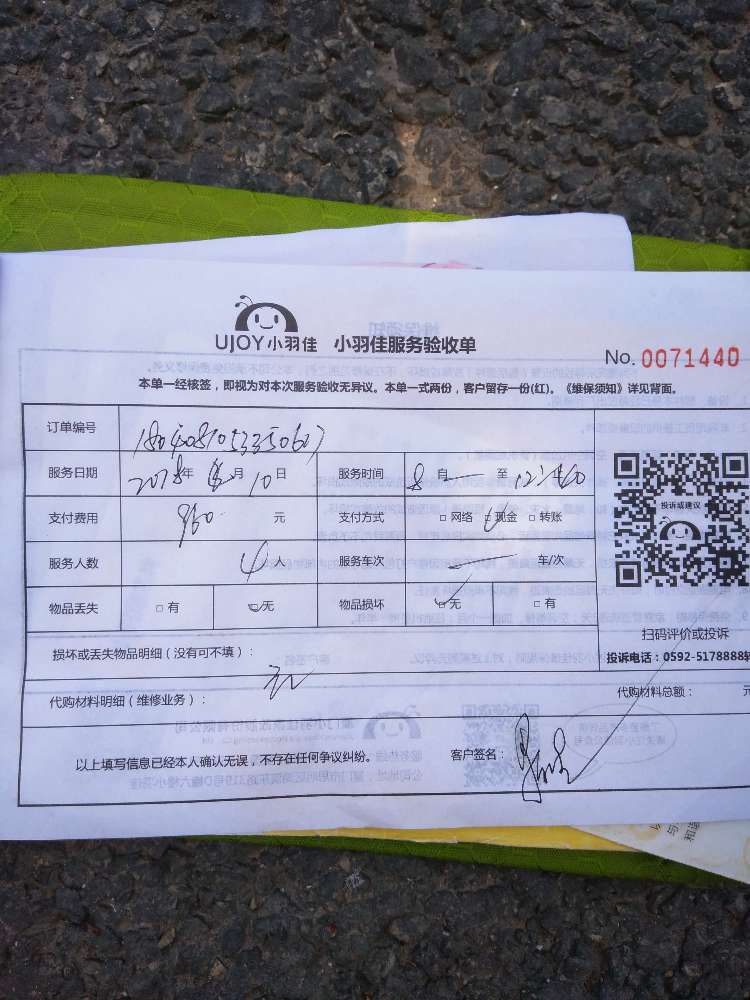 UJOY小羽佳 小羽佳服务验收单
No. 0071440
本单一经核签，即视为对本次服务验收无异议。本单一式两份，客户留存一份(红)。《维保须知》详见背面。
订单编号
服务日期 2018年 月 10日 服务时间 8 自 至 12:40
支付费用 960 元 支付方式 □ 网络 □ 现金 □ 转账
服务人数 4 人 服务车次 车/次
物品丢失 □ 有 □ 无 物品损坏 □ 无 □ 有
投诉或建议
扫码评价或投诉
投诉电话：0592-5178888转
损坏或丢失物品明细（没有可不填）：
无
代购材料明细（维修业务）：
代购材料总额： 元
以上填写信息已经本人确认无误，不存在任何争议纠纷。
客户签名：